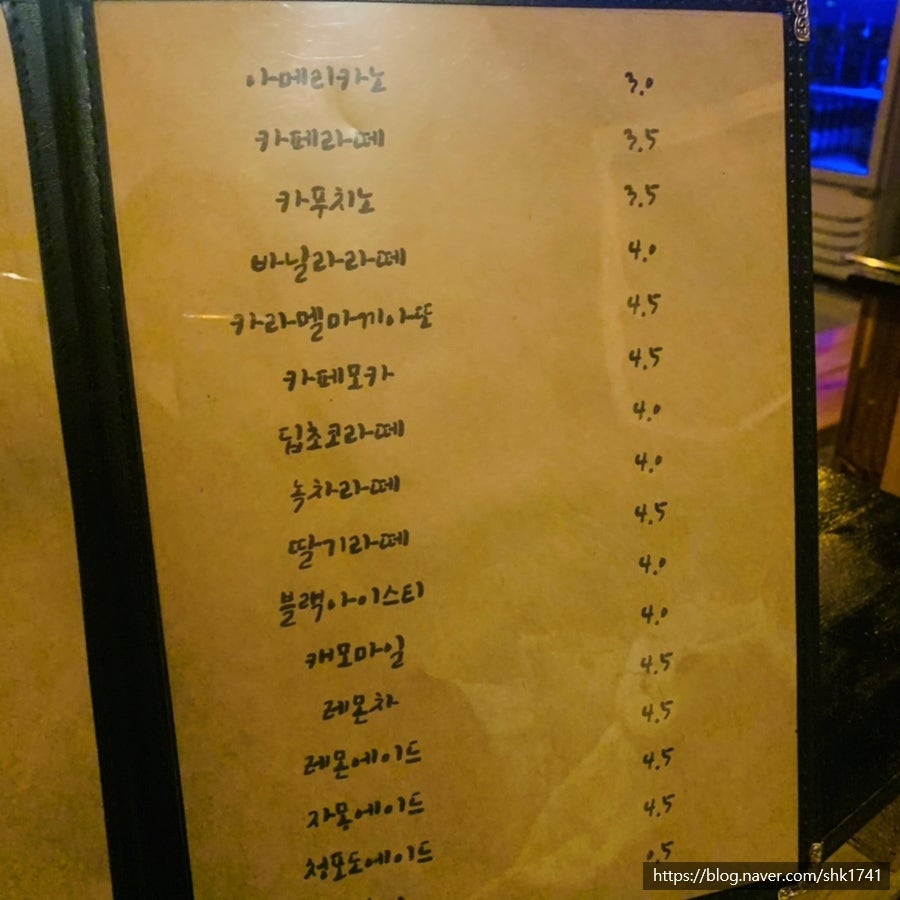 아메리카노 3.0
카페라떼 3.5
카푸치노 3.5
바닐라라떼 4.0
카라멜마끼아또 4.5
카페모카 4.5
딥초코라떼 4.0
녹차라떼 4.0
딸기라떼 4.5
블랙아이스티 4.0
캐모마일 4.0
레몬차 4.5
레몬에이드 4.5
자몽에이드 4.5
청포도에이드 4.5
https://blog.naver.com/shk1741